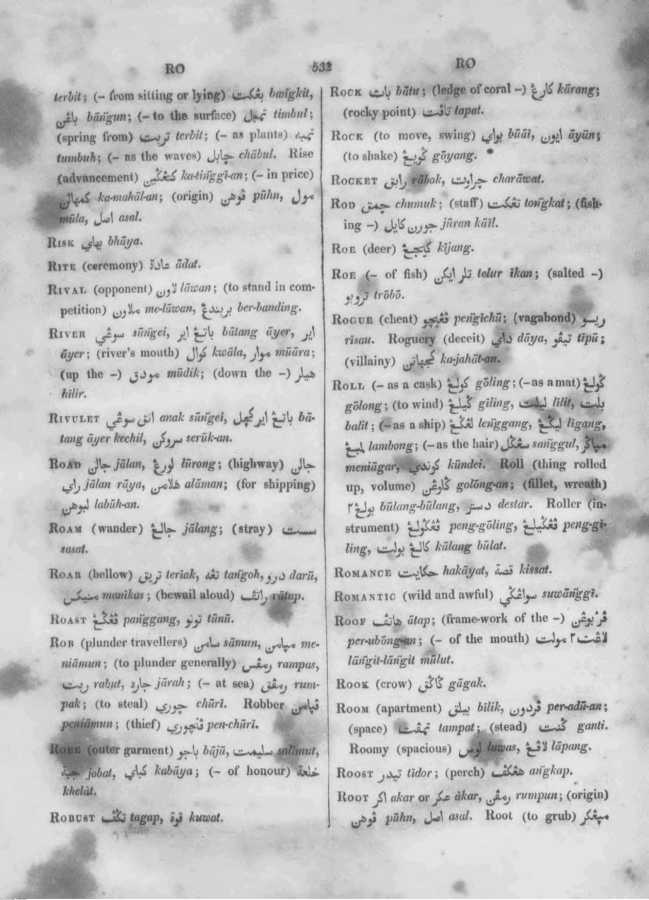 RO
532
RO
terbit; (- from sitting or lying) بڠكت bangkit,
باڠن bāngun; (- to the surface) تمبل timbul;
(spring from) تربت terbit; (- as plants) تمبه
tumbuh; (- as the waves) چابل chābul. Rise
(advancement) ka-tinggi-an; (- in price)
ka-mahāl-an; (origin) ڤوهن pūhn, مول
mūla, اصل asal.
RISK بهاي bhāya.
RITE (ceremony) عادة ādat.
RIVAL (opponent) لاون lāwan; (to stand in com-
petition) ملاون me-lāwan, بربندڠ ber-banding.
RIVER سوڠي sūngei, باتڠ اير bātang āyer, اير
āyer; (river's mouth) كوال kwāla, موار mūāra;
(up the -) مودق mūdik; (down the -) هيلر
hilir.
RIVULET انق سوڠي anak sūngei, باتڠ اير كچل bā-
tang āyer kechil, سروكن serūk-an.
ROAD جالن jālan, لورڠ lūrong; (highway) جالن
راي jālan rāya, هلامن alāman; (for shipping)
لبوهن labūh-an.
ROAM (wander) جالڠ jālang; (stray) سست
sasat.
ROAR (bellow) تريق teriak, تڠه tangoh, درو darū,
manikas; (bewail aloud) راتڤ rātap.
ROAST ڤڠڬڠ panggang, تونو tūnū.
ROB (plunder travellers) سامن sāmun, ميامن me-
niāmun; (to plunder generally) رمڤس rampas,
ربت rabut, جاره jārah; (- at sea) رمڤق rum-
pak; (to steal) چوري chūrī. Robber ڤيامن
peniāmun; (thief) ڤنچوري pen-chūrī.
ROBE (outer garment) باجو bājū, سليمت salimut,
جبة jobat, كباي kabāya; (- of honour) خلعة
khelāt.
ROBUST تڬڤ tagap, قوة kuwat.
ROCK بات bātu; (ledge of coral -) كارڠ kārang;
(rocky point) tapat.
ROCK (to move, swing) بواي būāi, ايون āyūn;
(to shake) ڬويڠ gōyang.
ROCKET رابق rābak, چراوت charāwat.
ROD چمق chumuk; (staff) تڠكت tongkat; (fish-
ing -) جورن كايل jūran kāīl.
ROE (deer) كيجڠ kījang.
ROE (- of fish) تلر ايكن telur īkan; (salted -)
تروبو trōbō.
ROGUE (cheat) ڤڠيچو pengichū; (vagabond) ريسو
rīsau. Roguery (deceit) داي dāya, تيڤو tīpū;
(villainy) كجهاتن ka-jahāt-an.
ROLL (- as a cask) ڬولڠ gōling; (- as a mat) ڬولڠ
gōlong; (to wind) ڬيلڠ gīling, ليلت lilit, بلت
balit; (- as a ship) لڠڬڠ lenggang, ليڬڠ ligang,
لمبڠ lambong; (- as the hair) سڠڬل sanggul,
meniāgar, كوندي kūndei. Roll (thing rolled
up, volume) ڬولڠن golōng-an; (fillet, wreath)
بولڠ٢ būlang-būlang, دستر destar. Roller (in-
strument) ڤڠڬولڠ peng-gōling, ڤڠڬيلڠ peng-gī-
ling, كالڠ بولت kālang būlat.
ROMANCE حكايت hakāyat, قصة kissat.
ROMANTIC (wild and awful) سواڠڬي suwānggī.
ROOF هاتڤ ātap; (frame-work of the -) ڤربوڠن
per-ubōng-an; (- of the mouth) لاڠت٢ مولت
lāngit-lāngit mūlut.
ROOK (crow) ڬاڬق gāgak.
ROOM (apartment) بيلق bīlik, ڤردون per-adū-an;
(space) تمڤت tampat; (stead) ڬنت ganti.
Roomy (spacious) لوس lūwas, لاڤڠ lāpang.
ROOST تيدر tīdor; (perch) هڠكڤ angkap.
ROOT اكر akar or عكر ākar, رمڤن rumpun; (origin)
ڤوهن pūhn, اصل asal. Root (to grub)